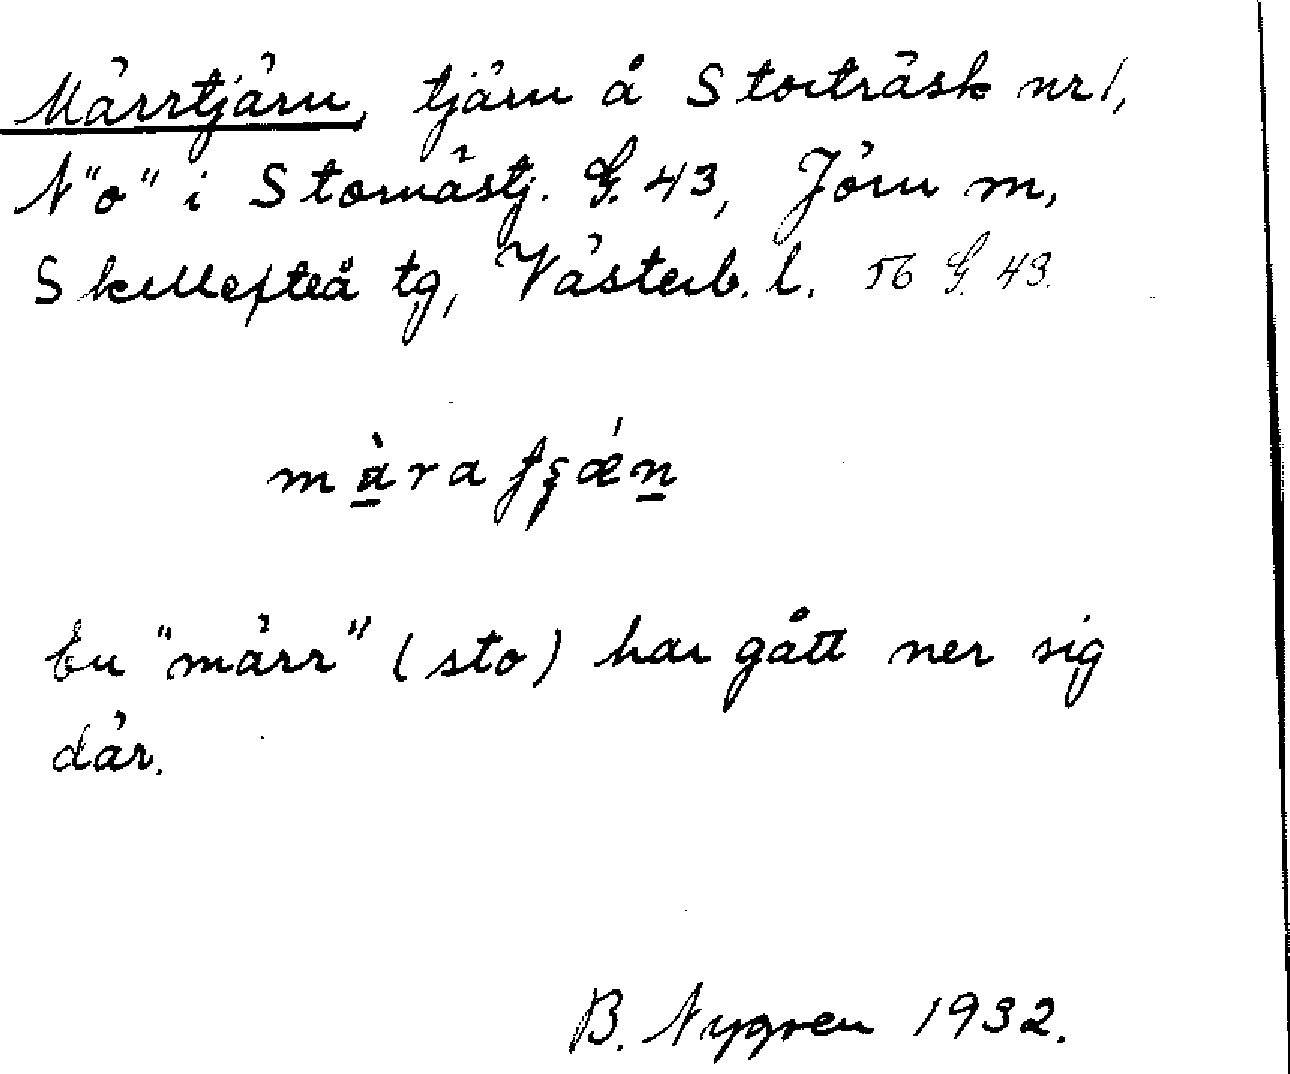 Märrtjärn, tjärn å Storträsk nr 1,
N "o" i Stornästj. G. 43, Jörn m,
Skellefteå tg, Västerb. l. 56 G. 43.
En "märr" (sto) har gått ner sig
där.
B. Nygren 1932.